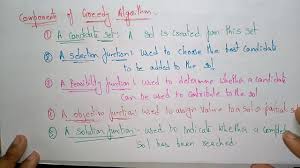 Component of Greedy Algorithm
① A candidate set: A sol is created from this set
② A selection function: Used to choose the best candidate
to be added to the sol
③ A feasibility function: Used to determine whether a candidate
can be used to contribute to the sol
④ A objective function: used to assign value to a sol or partial sol
⑤ A solution function- used to indicate whether a complete
sol has been reached.